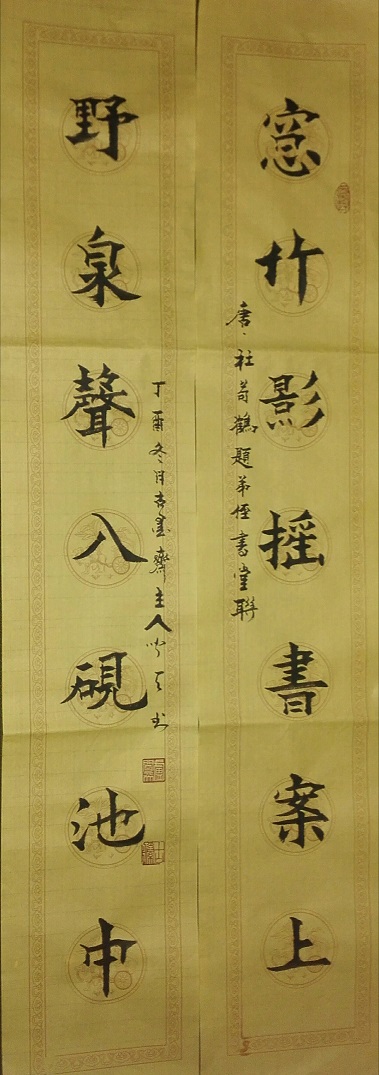 窓竹影摇書案上
唐、杜荀鶴題弟侄書堂聯
野泉聲入硯池中
丁酉冬月古墨齋主人书